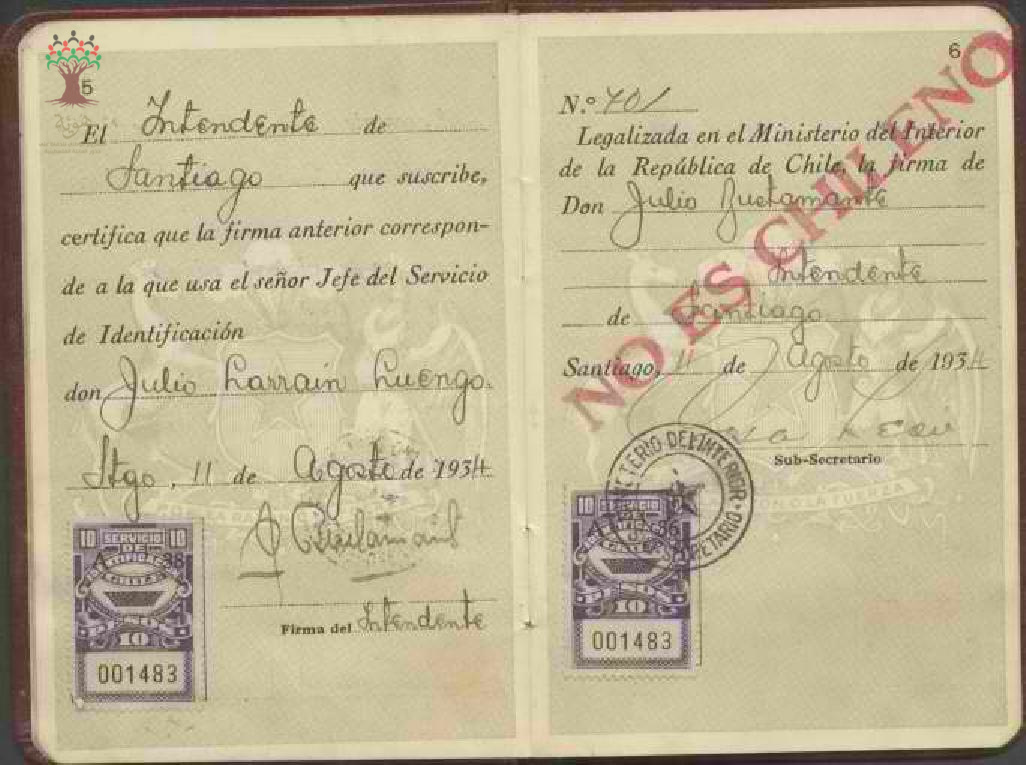 5
El Intendente de
Santiago que suscribe,
certifica que la firma anterior correspon-
de a la que usa el señor Jefe del Servicio
de Identificación
don Julio Larrain Luengo.
Stgo, 11 de Agosto de 1934
Firma del Intendente
10 SERVICIO 10
DE
10
001483
6
N.º 701
Legalizada en el Ministerio del Interior
de la República de Chile, la firma de
Don Julio Bustamante
Intendente
de Santiago
Santiago, 11 de Agosto de 1934
NO ES CHILENO
Sub-Secretario
MINISTERIO DEL INTERIOR
SUBSECRETARIO
10 SERVICIO 10
10
001483